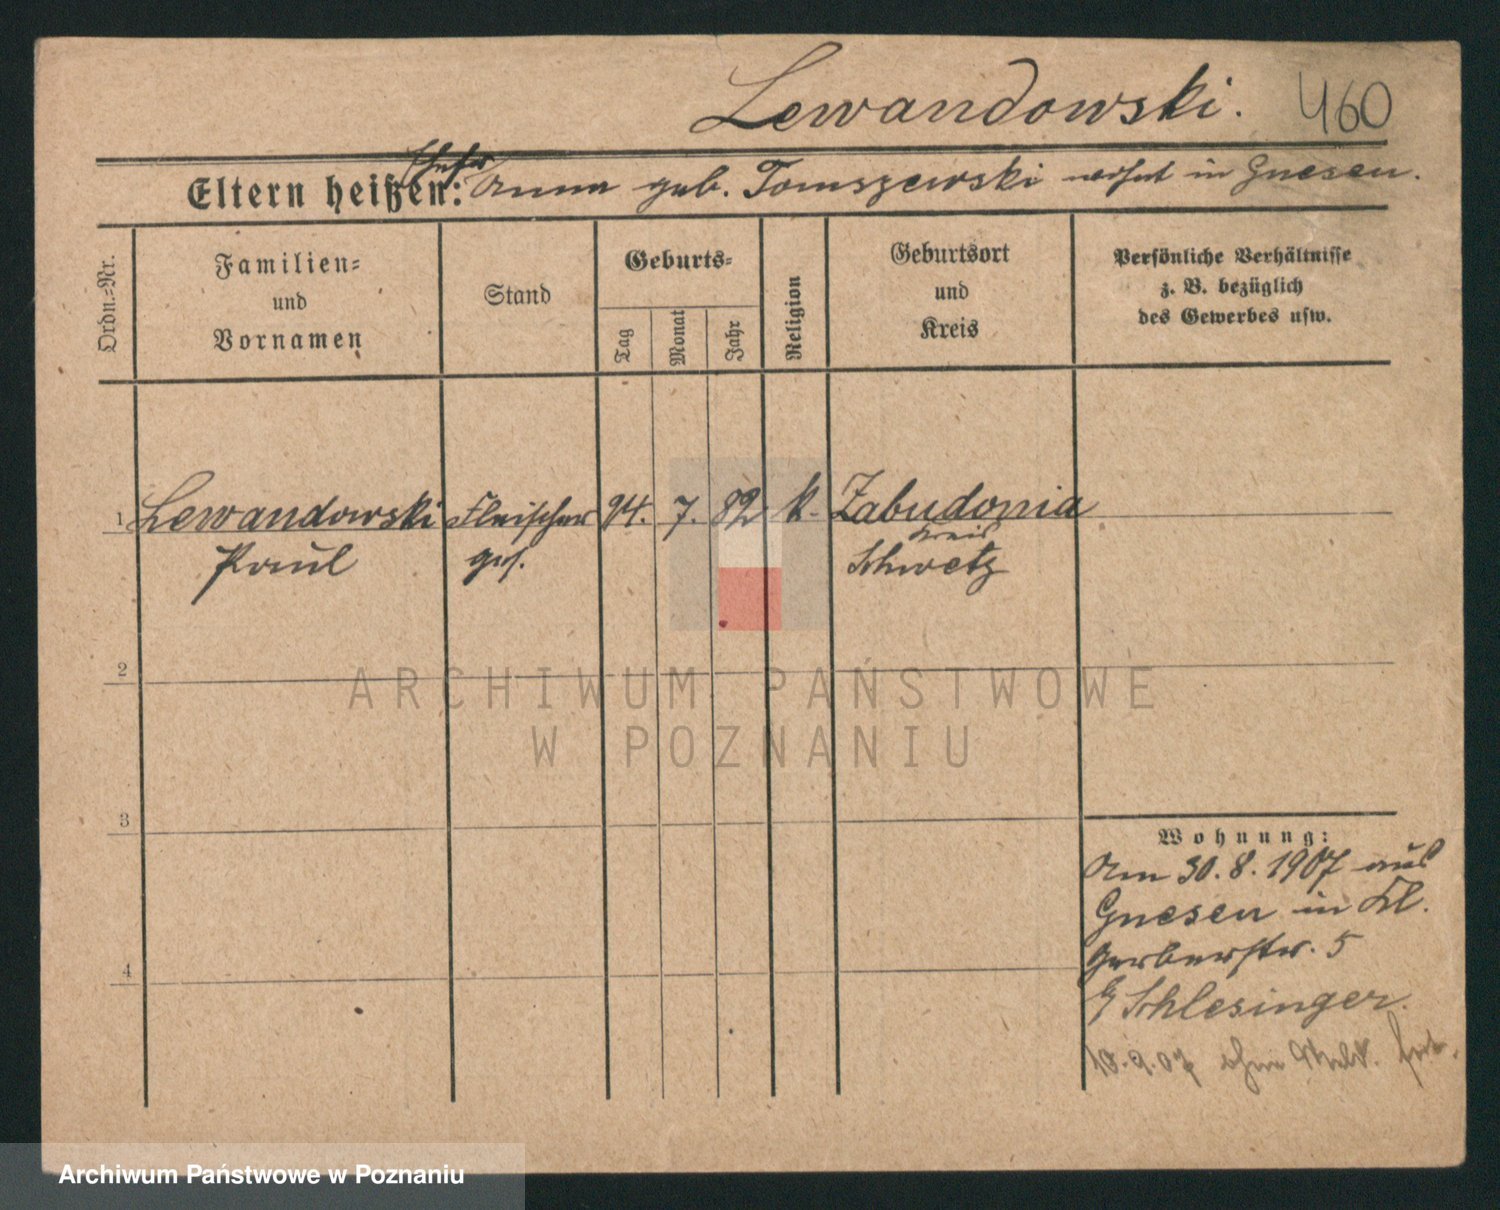 Lewandowski. 460
Eltern heißen: Anna geb. Tomszewski wohnt in Gnesen.
Ordn.-Nr.
Familien-
und
Vornamen
Stand
Geburts-
Tag
Monat
Jahr
Religion
Geburtsort
und
Kreis
Persönliche Verhältnisse
z. B. bezüglich
des Gewerbes usw.
1 Lewandowski Fleischer 7. 82 k. Zabudonia
Kreis
Paul ges. Schwetz
2
ARCHIWUM PAŃSTWOWE
W POZNANIU
3
Wohnung:
Am 30.8.1907 aus
Gnesen in Kl.
Gerberstr. 5
b/ Schlesinger.
4
18.9.07 ohne Meld. fort.
Archiwum Państwowe w Poznaniu